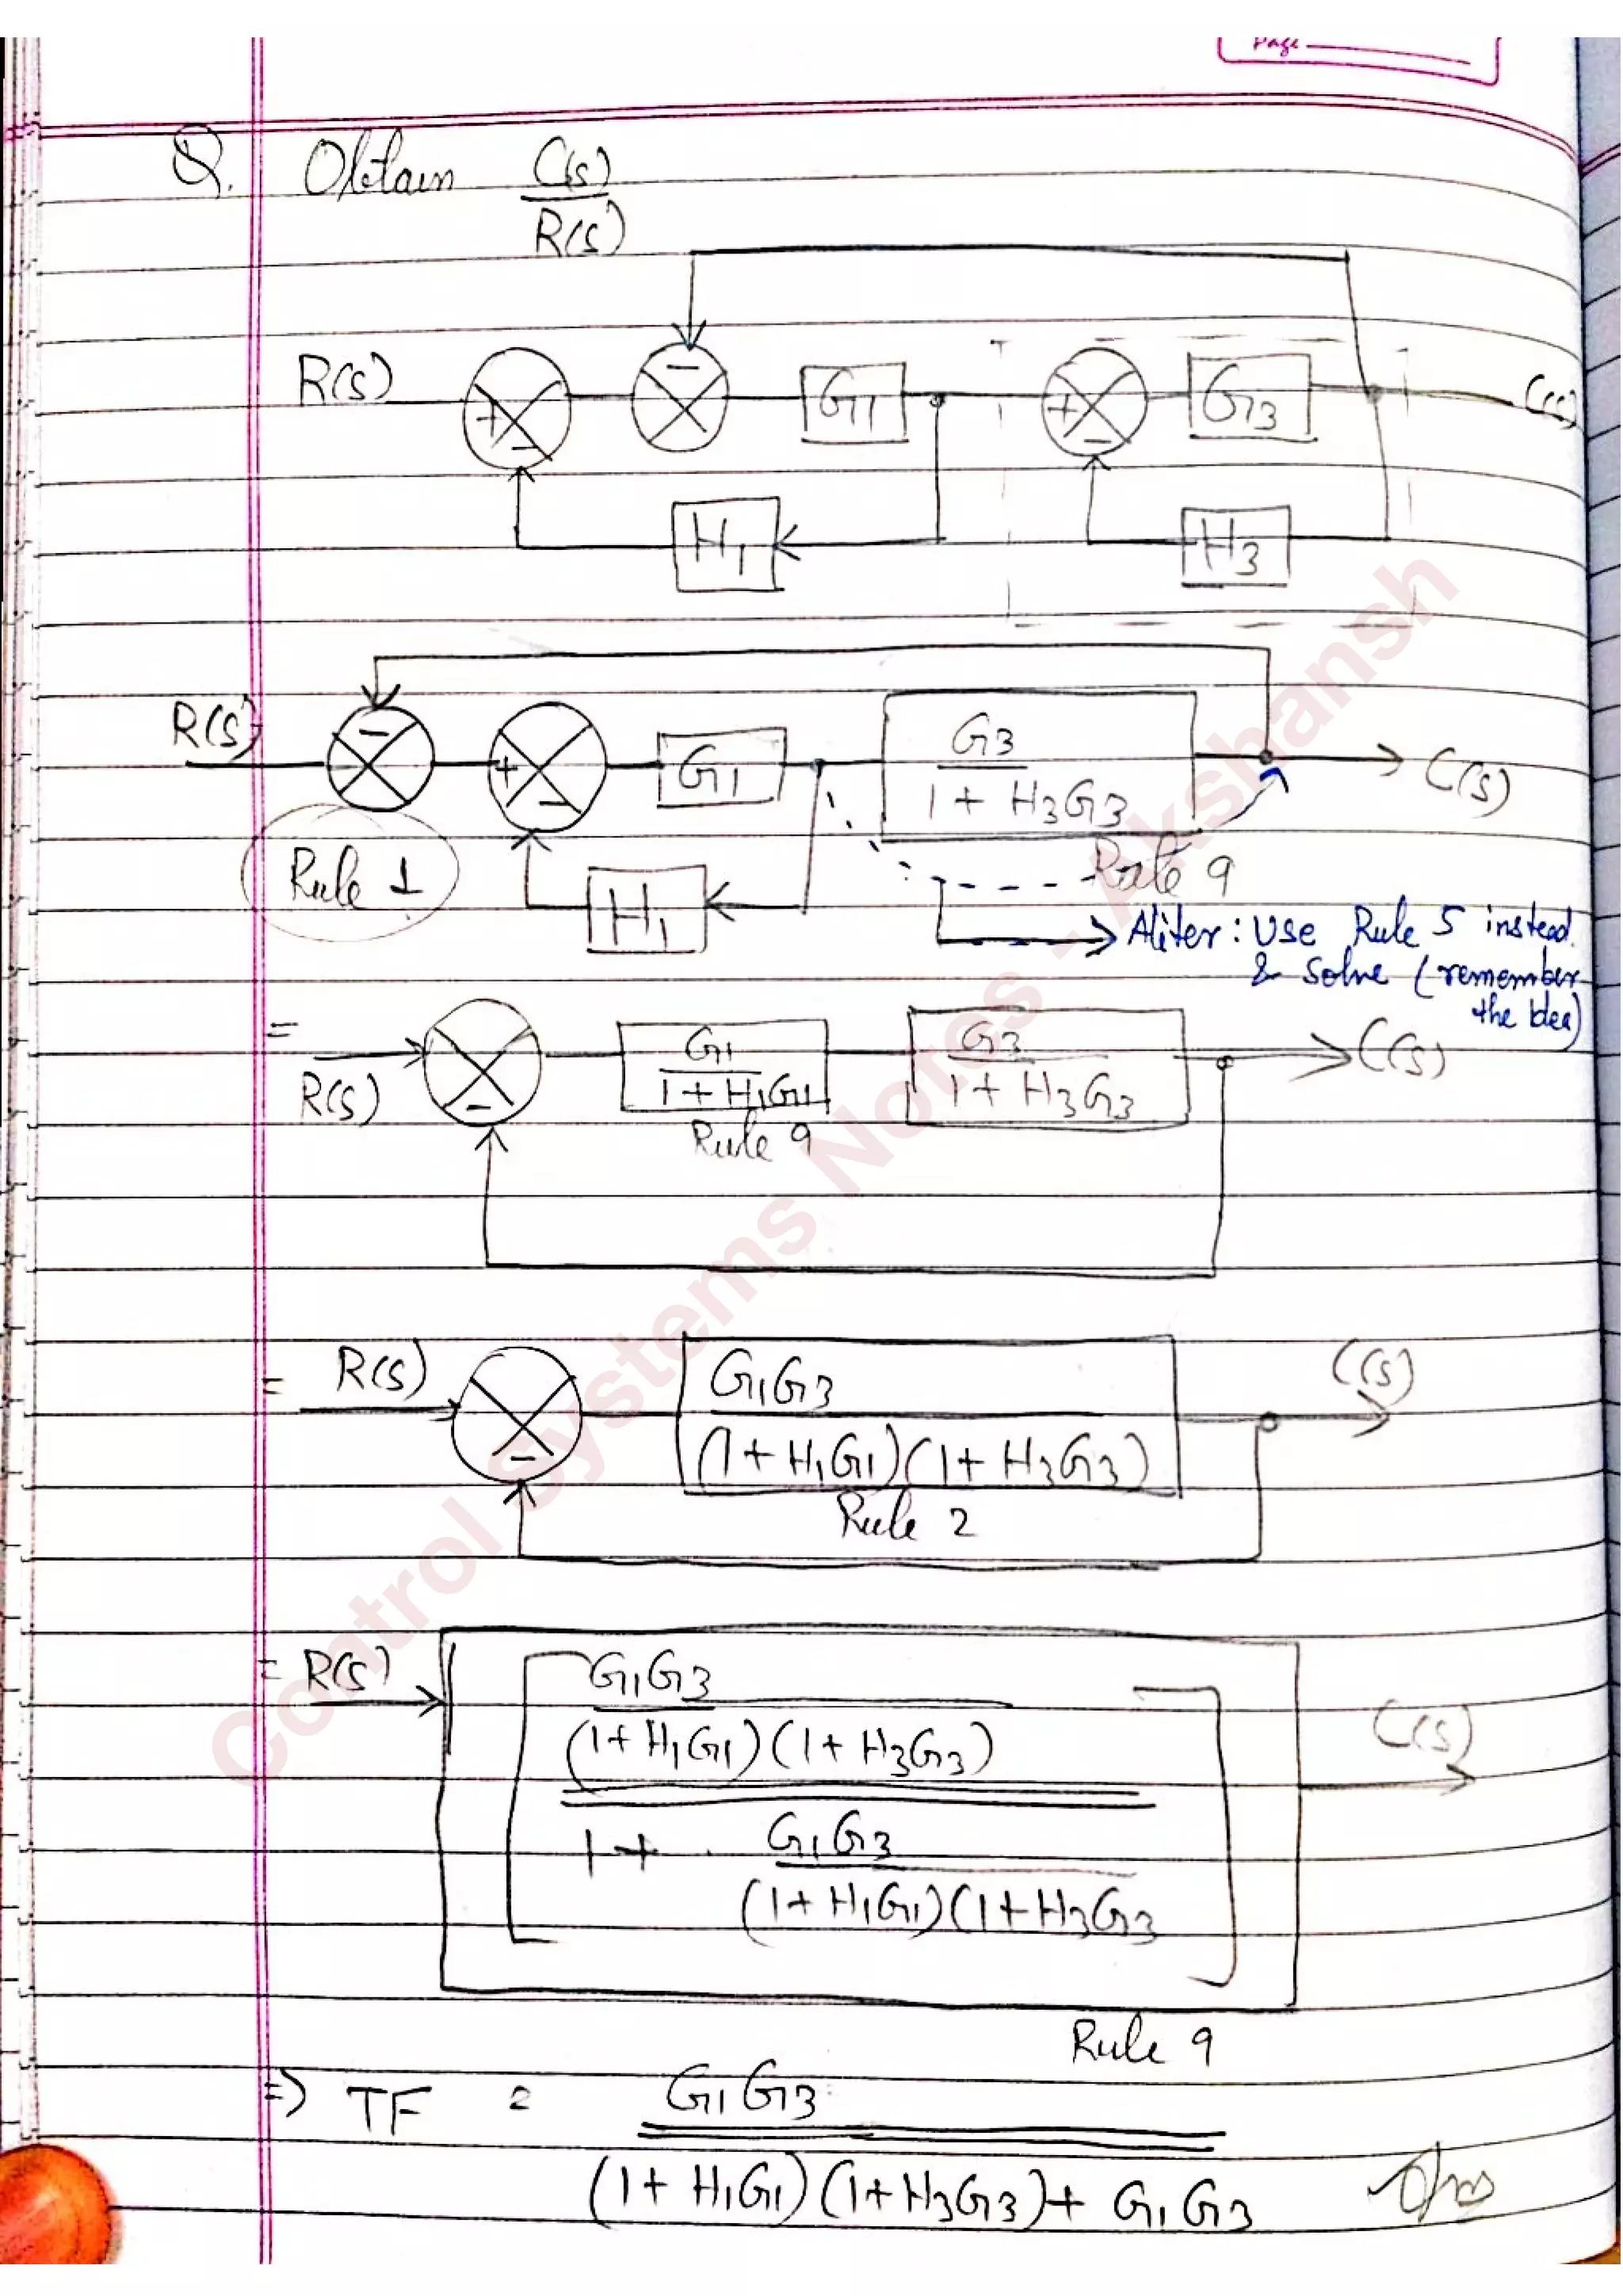 Page
Q. Obtain C(s)
R(s)
R(s) + - - G1 + - G3 C(s)
H1 H3
R(s) - + - G1 G3 C(s)
1 + H3G3
Rule 1 H1 Rule 9
Aliter : Use Rule 5 instead.
& Solve (remember
the Idea)
= R(s) - G1 G3 C(s)
1 + H1G1 1 + H3G3
Rule 9
= R(s) - G1G3 C(s)
(1 + H1G1)(1 + H3G3)
Rule 2
= R(s) G1G3 C(s)
(1 + H1G1)(1 + H3G3)
1 + G1G3
(1 + H1G1)(1 + H3G3
Rule 9
=> TF = G1G3
(1 + H1G1)(1 + H3G3) + G1G3 Ans
Control Systems Notes - Akshansh